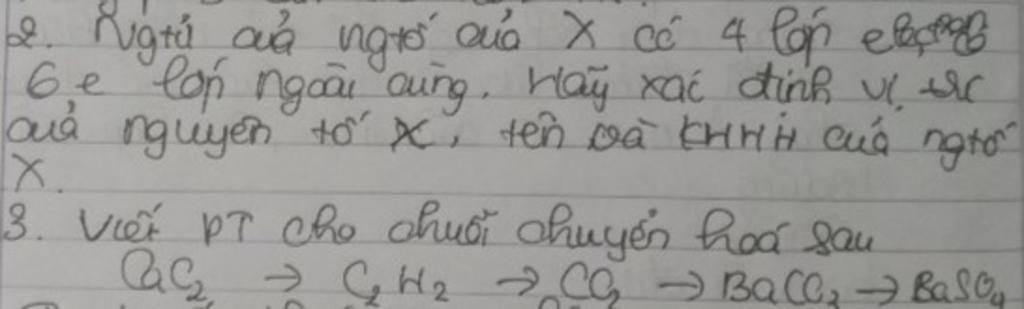 2. Ngtử của ngtố của X có 4 lớp electron
6e lớp ngoài cùng. Hãy xác định vị trí
của nguyên tố X, tên và KHHH của ngtố
X.
3. Viết PT cho chuỗi chuyển hoá sau
CaC₂ → C₂H₂ → CO₂ → BaCO₃ → BaSO₄